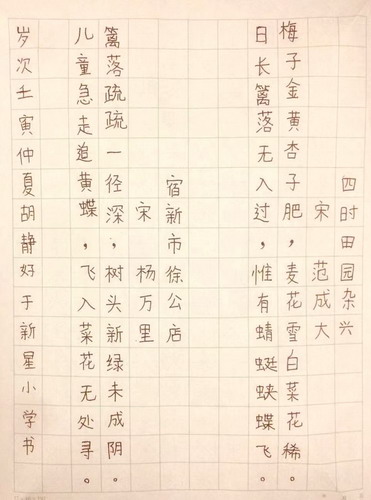 四时田园杂兴
宋 范成大
梅子金黄杏子肥，麦花雪白菜花稀。
日长篱落无入过，惟有蜻蜓蛱蝶飞。
宿新市徐公店
宋 杨万里
篱落疏疏一径深，树头新绿未成阴。
儿童急走追黄蝶，飞入菜花无处寻。
岁次壬寅仲夏胡静好于新星小学书